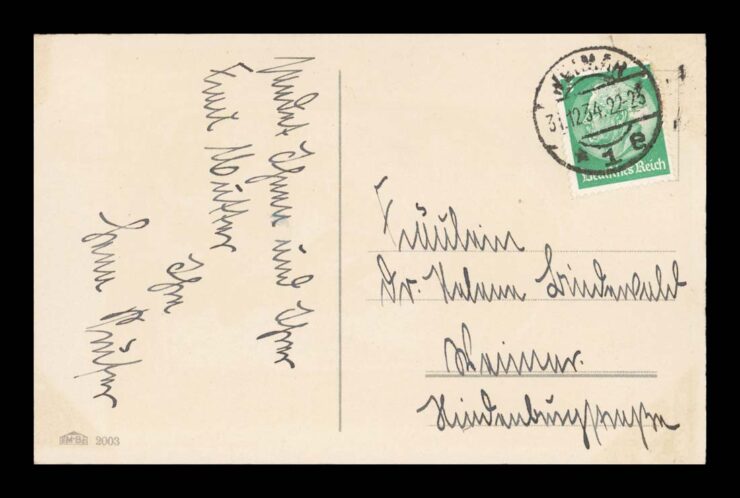 sendet Ihnen und Ihrer
Frau Mutter
Ihr
WEIMAR
31.12.34. 22-23
* 1 e
Deutsches Reich
Fräulein
Dr. Helene Bindewald
Weimar.
Hindenburgstraße
2003